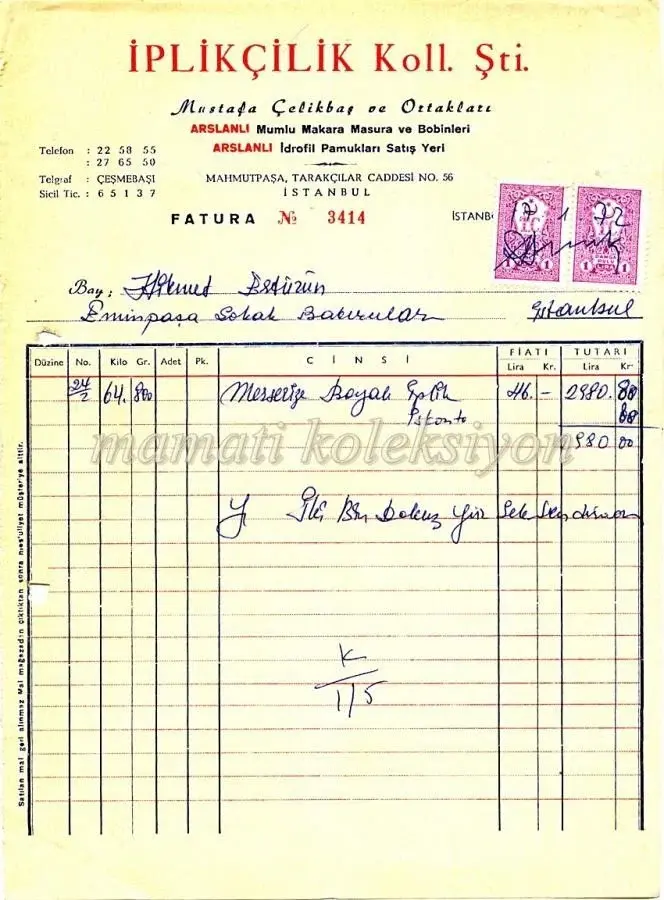 İPLİKÇİLİK Koll. Şti.
Mustafa Çelikbaş ve Ortakları
ARSLANLI Mumlu Makara Masura ve Bobinleri
ARSLANLI İdrofil Pamukları Satış Yeri
Telefon : 22 58 55
: 27 65 50
Telgraf : ÇEŞMEBAŞI
Sicil Tic. : 6 5 1 3 7
MAHMUTPAŞA, TARAKÇILAR CADDESİ NO. 56
İSTANBUL
FATURA № 3414
İSTANB 17 1 72
Bay: Hikmet Üstürün
Eminpaşa Sokak Bakırcılar İstanbul
Düzine No. Kilo Gr. Adet Pk. CİNSİ FİATI Lira Kr. TUTARI Lira Kr.
24/2 64. 800 Merserize Boyalı İplik 46. - 2980. 80
İskonto 80
2980 00
mamati koleksiyon
Y İki Bin Dokuz Yüz Seksen liradır
K
1/5
Satılan mal geri alınmaz Mal mağazadan çıktıktan sonra mes'uliyet müşteriye aittir.